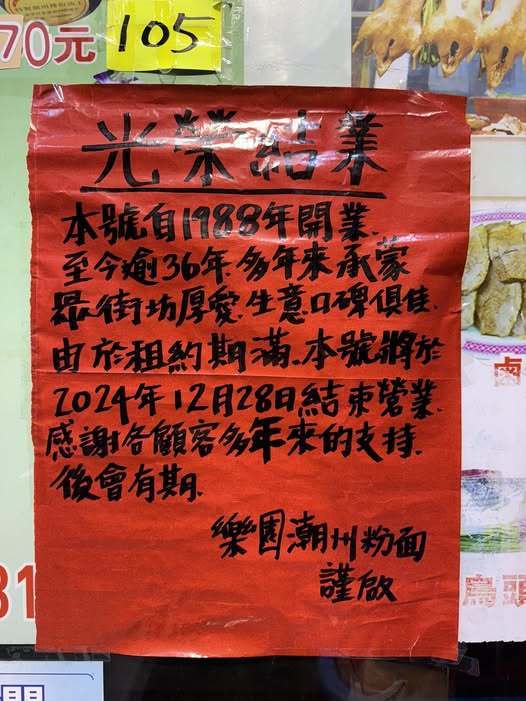 70元
105
光榮結業
本號自1988年開業.
至今逾36年.多年來承蒙
眾街坊厚愛.生意口碑俱佳.
由於租約期滿.本號將於
2024年12月28日結束營業.
感謝各顧客多年來的支持.
後會有期.
樂園潮州粉面
謹啟
滷
烏頭
31